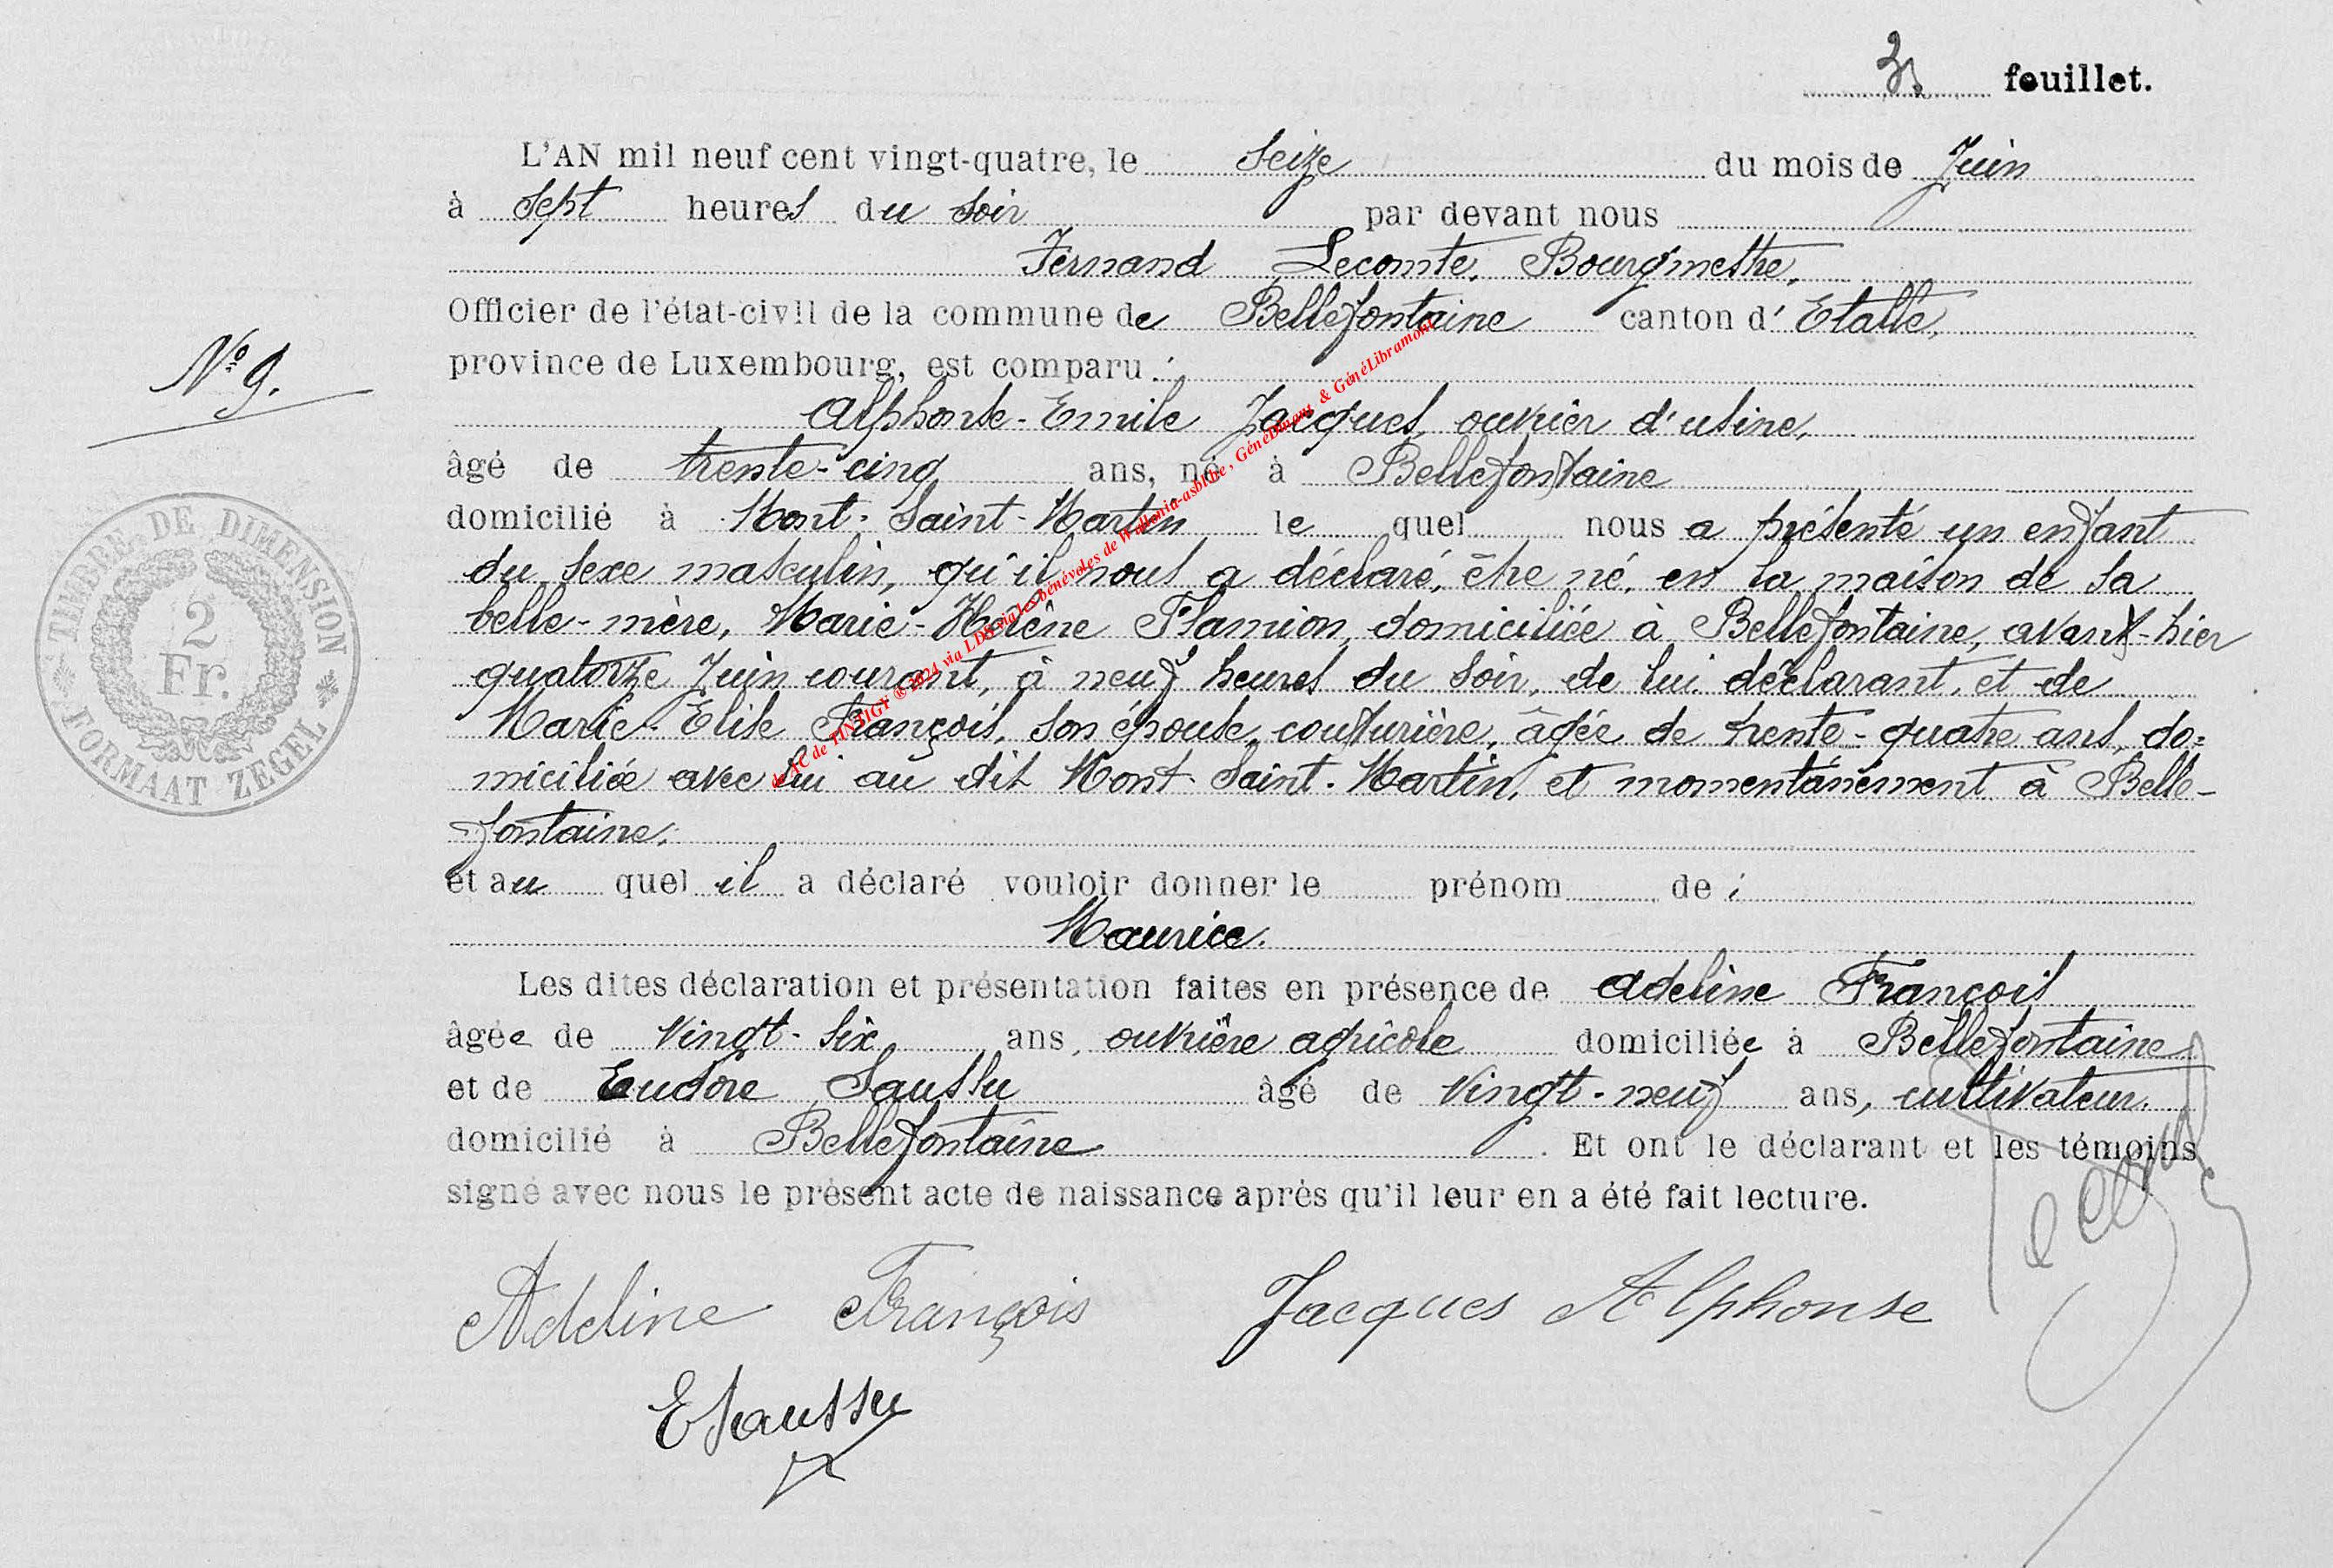 3 feuillet.
L'AN mil neuf cent vingt-quatre, le Seize du mois de Juin
à sept heures du soir par devant nous
Fernand Lecomte, Bourgmestre,
Officier de l'état-civil de la commune de Bellefontaine canton d'Etalle,
province de Luxembourg, est comparu :
N° 9.
Alphonse-Emile Jacques, ouvrier d'usine,
âgé de trente-cinq ans, né à Bellefontaine
domicilié à Mont-Saint-Martin le quel nous a présenté un enfant
du sexe masculin, qu'il nous a déclaré, être né, en la maison de sa
belle-mère, Marie-Hélène Flamion, domiciliée à Bellefontaine, avant-hier
quatorze Juin courant, à neuf heures du soir, de lui déclarant, et de
Marie-Elise François, son épouse, couturière, âgée de trente-quatre ans, do=
miciliée avec lui au dit Mont-Saint-Martin, et momentanément à Belle-
fontaine.
et au quel il a déclaré vouloir donner le prénom de :
Maurice.
Les dites déclaration et présentation faites en présence de Adeline François
âgée de vingt-six ans, ouvrière agricole domiciliée à Bellefontaine
et de Eudore Saussu âgé de vingt-neuf ans, cultivateur,
domicilié à Bellefontaine. Et ont le déclarant et les témoins
signé avec nous le présent acte de naissance après qu'il leur en a été fait lecture.
Lecomte
Adeline François Jacques Alphonse
E Saussu
TIMBRE DE DIMENSION
2
Fr.
FORMAAT ZEGEL
de AC de TINTIGY ® 2024 via LDS via les bénévoles de Wallonia-asbl.be, GénéDinant & GénéLibramont